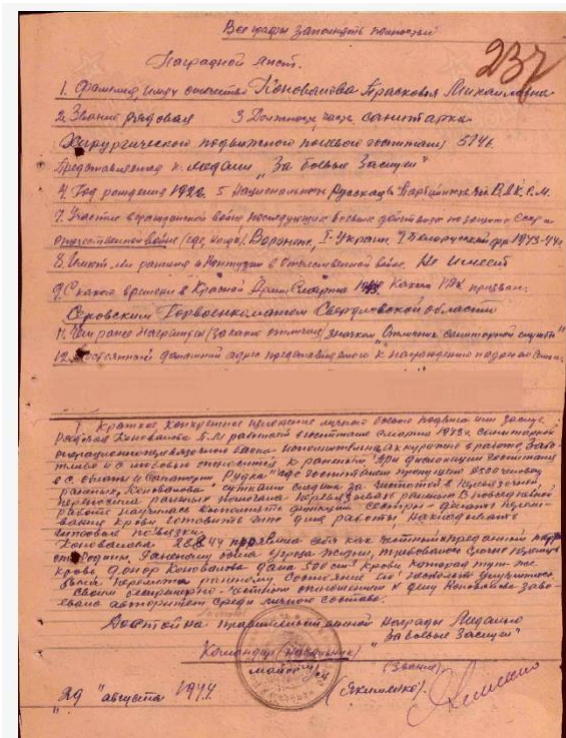 Все графы заполнять полностью
237
Наградной лист.
1. Фамилия, имя и отчество Коновалова Прасковья Михайловна
2. Звание рядовая 3 Должность, часть санитарка
Хирургического подвижного полевого госпиталя 5146.
Представляется к медали „За боевые заслуги"
4. Год рождения 1922. 5 Национальность Русская 6 Партийность чл. ВЛКСМ.
7. Участие в гражданской войне последующих боевых действиях по защите СССР и
отечественной войне (где, когда). Воронеж, I-Украин, I Белорусский фр. 1943-44г
8. Имеет ли ранения и контузии в отечественной войне. Не имеет
9. С какого времени в Красной Армии С марта Каким РВК призван:
Серовским Горвоенкоматом Свердловской области
11. Чем ранее награжден (за какие отличия) значком „Отличник санитарной службы"
12. Постоянный домашний адрес представляемого к награждению и адрес семьи.
1. Краткое, конкретное изложение личного боевого подвига или заслуг.
Рядовая Коновалова П.М. работает в госпитале с марта 1943г. санитаркой
операционно-перевязочного взвода. исполнительна, аккуратна в работе, забот-
лива и с любовью относится к раненым. При дислокации госпиталя
в с. и Санатории Рудка где госпиталь пропустил 2500 человек
раненых, Коновалова сутками следила за чистотой в перевязочной
переносила раненых помогала перевязывать раненых. В повседневной
работе научилась выполнять функции сестры - делать перели-
вание крови, готовить что для работы, накладывать
гипсовые повязки.
Коновалова 22.8.44 проявила себя как честный и преданный патри-
от родины. Раненому была угроза жизни, требовалось срочно перелить
кровь. донор Коновалова дала 500 см³ крови которая тут-же
была перелита раненому. Состояние его несколько улучшилось.
Своим честным отношением к делу Коновалова заво-
евала авторитет среди личного состава.
Достойна правительственной награды Медалью
„За боевые Заслуги"
Командир (начальник)
майор м/с (Звание)
„29" августа 1944. (Якименко)